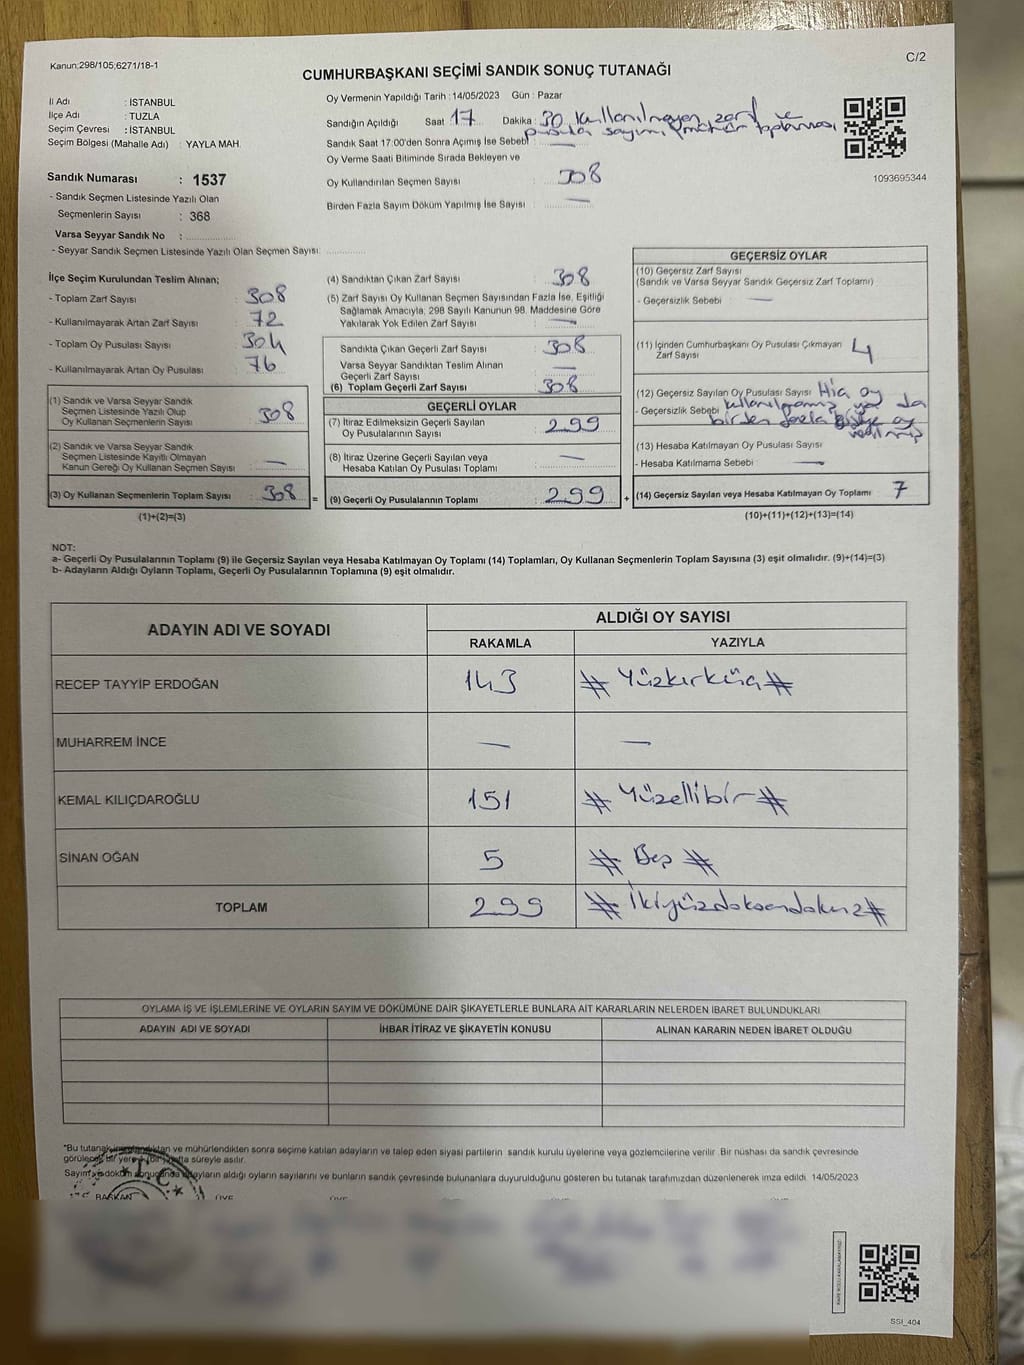 Kanun:298/105;6271/18-1
C/2
CUMHURBAŞKANI SEÇİMİ SANDIK SONUÇ TUTANAĞI
İl Adı : İSTANBUL
İlçe Adı : TUZLA
Seçim Çevresi : İSTANBUL
Seçim Bölgesi (Mahalle Adı) : YAYLA MAH.
Oy Vermenin Yapıldığı Tarih : 14/05/2023 Gün : Pazar
Sandığın Açıldığı Saat 17 Dakika : 30 kullanılmayan zarf ve
pusula sayımı, mühür toplanması
Sandık Saat 17:00'den Sonra Açımış İse Sebebi : —
Oy Verme Saati Bitiminde Sırada Bekleyen ve
Oy Kullandırılan Seçmen Sayısı : 308
Birden Fazla Sayım Döküm Yapılmış İse Sayısı : —
1093695344
Sandık Numarası : 1537
- Sandık Seçmen Listesinde Yazılı Olan
Seçmenlerin Sayısı : 368
Varsa Seyyar Sandık No :
- Seyyar Sandık Seçmen Listesinde Yazılı Olan Seçmen Sayısı:
İlçe Seçim Kurulundan Teslim Alınan;
- Toplam Zarf Sayısı : 308
- Kullanılmayarak Artan Zarf Sayısı : 72
- Toplam Oy Pusulası Sayısı : 304
- Kullanılmayarak Artan Oy Pusulası : 76
(1) Sandık ve Varsa Seyyar Sandık
Seçmen Listesinde Yazılı Olup
Oy Kullanan Seçmenlerin Sayısı : 308
(2) Sandık ve Varsa Seyyar Sandık
Seçmen Listesinde Kayıtlı Olmayan
Kanun Gereği Oy Kullanan Seçmen Sayısı : —
(3) Oy Kullanan Seçmenlerin Toplam Sayısı : 308
(1)+(2)=(3)
(4) Sandıktan Çıkan Zarf Sayısı : 308
(5) Zarf Sayısı Oy Kullanan Seçmen Sayısından Fazla İse, Eşitliği
Sağlamak Amacıyla; 298 Sayılı Kanunun 98. Maddesine Göre
Yakılarak Yok Edilen Zarf Sayısı : —
Sandıkta Çıkan Geçerli Zarf Sayısı : 308
Varsa Seyyar Sandıktan Teslim Alınan
Geçerli Zarf Sayısı : —
(6) Toplam Geçerli Zarf Sayısı : 308
GEÇERLİ OYLAR
(7) İtiraz Edilmeksizin Geçerli Sayılan
Oy Pusulalarının Sayısı : 299
(8) İtiraz Üzerine Geçerli Sayılan veya
Hesaba Katılan Oy Pusulası Toplamı : —
= (9) Geçerli Oy Pusulalarının Toplamı : 299 +
GEÇERSİZ OYLAR
(10) Geçersiz Zarf Sayısı
(Sandık ve Varsa Seyyar Sandık Geçersiz Zarf Toplamı)
- Geçersizlik Sebebi : —
(11) İçinden Cumhurbaşkanı Oy Pusulası Çıkmayan
Zarf Sayısı : 4
(12) Geçersiz Sayılan Oy Pusulası Sayısı Hiç oy
- Geçersizlik Sebebi kullanılmamış ya da
birden fazla kişiye oy
verilmiş
(13) Hesaba Katılmayan Oy Pusulası Sayısı
- Hesaba Katılmama Sebebi : —
(14) Geçersiz Sayılan veya Hesaba Katılmayan Oy Toplamı : 7
(10)+(11)+(12)+(13)=(14)
NOT:
a- Geçerli Oy Pusulalarının Toplamı (9) ile Geçersiz Sayılan veya Hesaba Katılmayan Oy Toplamı (14) Toplamları, Oy Kullanan Seçmenlerin Toplam Sayısına (3) eşit olmalıdır. (9)+(14)=(3)
b- Adayların Aldığı Oyların Toplamı, Geçerli Oy Pusulalarının Toplamına (9) eşit olmalıdır.
ADAYIN ADI VE SOYADI
ALDIĞI OY SAYISI
RAKAMLA YAZIYLA
RECEP TAYYİP ERDOĞAN 143 # Yüzkırküç #
MUHARREM İNCE — —
KEMAL KILIÇDAROĞLU 151 # Yüzellibir #
SİNAN OĞAN 5 # Beş #
TOPLAM 299 # İkiyüzdoksandokuz #
OYLAMA İŞ VE İŞLEMLERİNE VE OYLARIN SAYIM VE DÖKÜMÜNE DAİR ŞİKAYETLERLE BUNLARA AİT KARARLARIN NELERDEN İBARET BULUNDUKLARI
ADAYIN ADI VE SOYADI İHBAR İTİRAZ VE ŞİKAYETİN KONUSU ALINAN KARARIN NEDEN İBARET OLDUĞU
*Bu tutanak ve mühürlendikten sonra seçime katılan adayların ve talep eden siyasi partilerin sandık kurulu üyelerine veya gözlemcilerine verilir. Bir nüshası da sandık çevresinde
görülecek bir yere bir hafta süreyle asılır.
Sayım ve döküm sonucunda adayların aldığı oyların sayılarını ve bunların sandık çevresinde bulunanlara duyurulduğunu gösteren bu tutanak tarafımızdan düzenlenerek imza edildi. 14/05/2023
T.C.
BAŞKAN ÜYE ÜYE
SSI_404